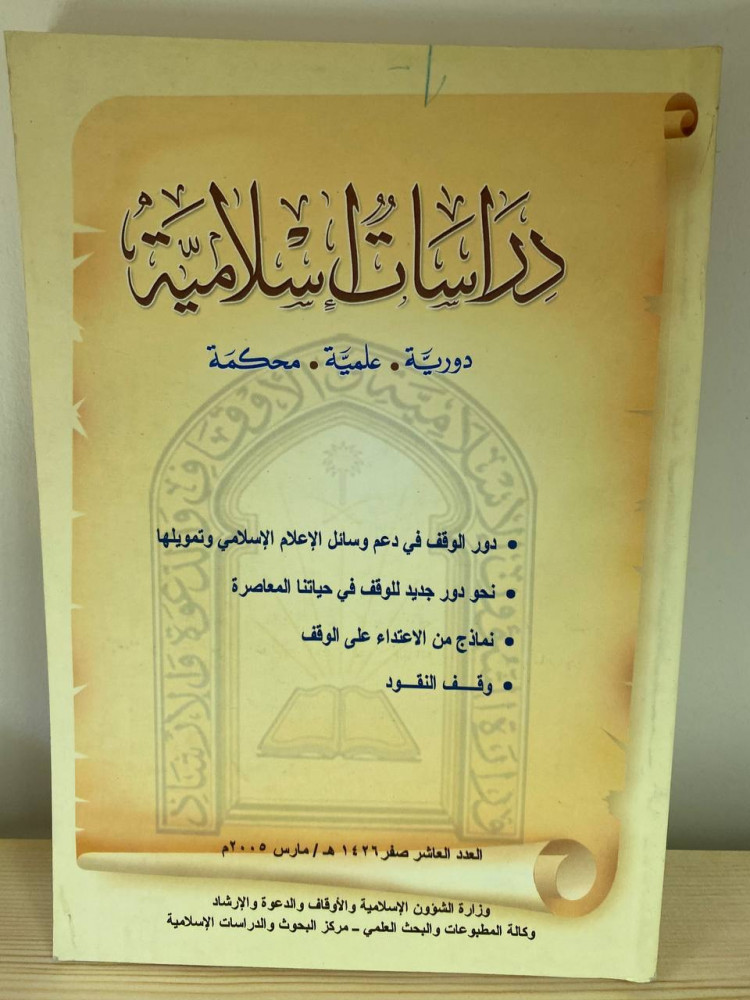 دِرَاسَاتٌ إِسْلَامِيَّةٌ
دوريَّة • علميَّة • محكمَة
• دور الوقف في دعم وسائل الإعلام الإسلامي وتمويلها
• نحو دور جديد للوقف في حياتنا المعاصرة
• نماذج من الاعتداء على الوقف
• وقف النقود
العدد العاشر صفر ١٤٢٦ هـ / مارس ٢٠٠٥م
وزارة الشؤون الإسلامية والأوقاف والدعوة والإرشاد
وكالة المطبوعات والبحث العلمي – مركز البحوث والدراسات الإسلامية